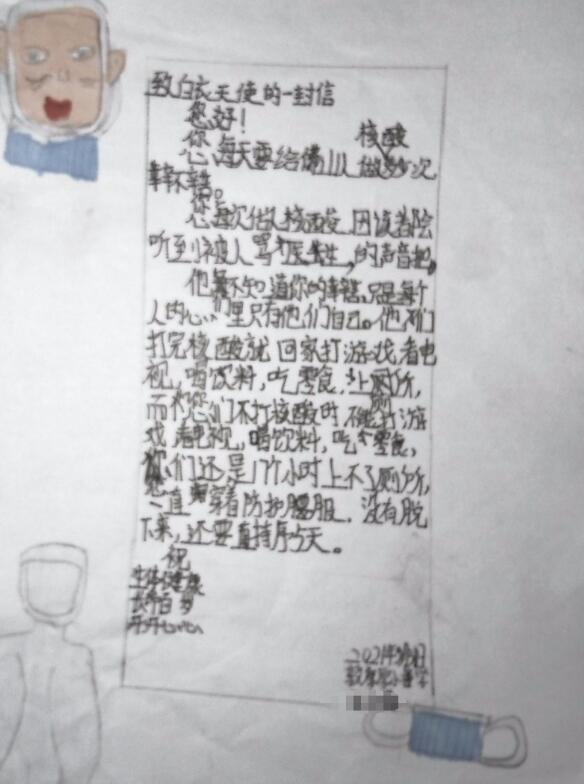 致白衣天使的一封信
您好！
核酸
您每天要给佛山人做多少次
辛辛苦苦。
您每次做核酸，因该都会
听到被人骂打医生，的声音把。
他们不知道你的辛苦，只是每个
人的心里只有他们自己。他们
打完核酸就回家打游戏，看电
视，喝饮料，吃零食，上厕所，
而您们不打核酸时不能打游
戏，看电视，喝饮料，吃零食，
您们还是几个小时上不了厕所，
一直穿着防护服，没有脱
下来，还要直持
天。
祝
生体健康
长命百岁
开开心心
2021年